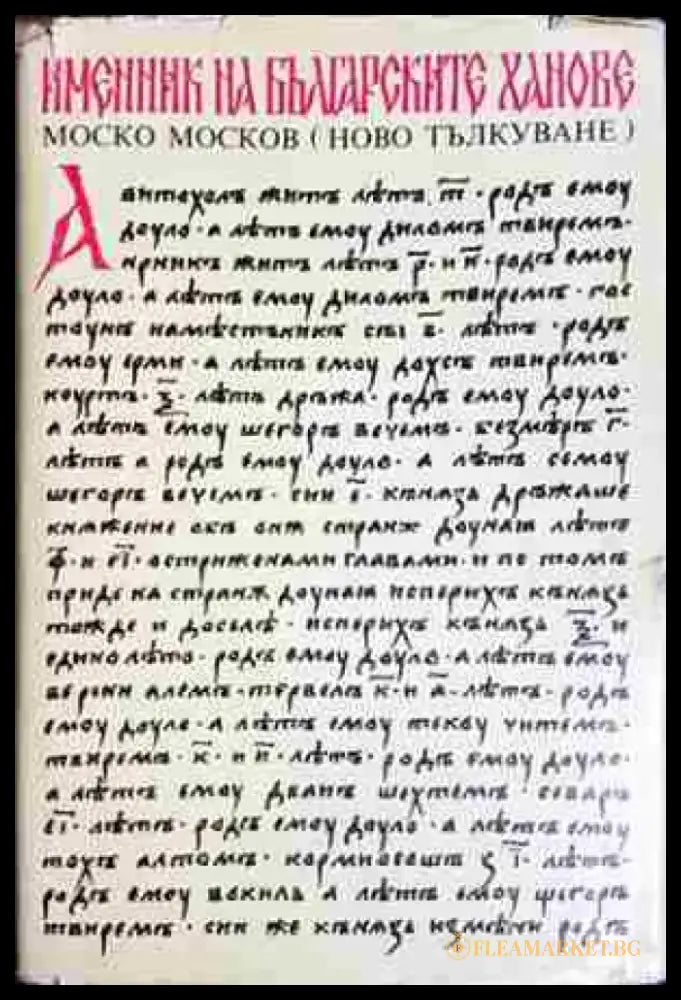 ИМЕННИК НА БЪЛГАРСКИТЕ ХАНОВЕ
МОСКО МОСКОВ (НОВО ТЪЛКУВАНЕ)
А
витохолъ житъ лѣтъ т҃ · родъ емоу
доуло · а лѣтъ емоу диломъ твиремъ ·
ирникъ житъ лѣтъ р҃ · и и҃ · родъ емоу
доуло · а лѣтъ емоу диломъ твиремъ · гос
тоунъ намѣстьникъ сы в҃ · лѣтъ · родъ
емоу ерми · а лѣтъ емоу дохсъ твиремъ ·
коуртъ · ѯ҃ · лѣтъ дръжа · родъ емоу доуло ·
а лѣтъ емоу шегоръ вечемъ · безмѣръ г҃ ·
лѣтъ а родъ емоу доуло · а лѣтъ семоу
шегоръ вечемъ · сии е҃ · кънязь дръжаше
княжение обь онѫ странѫ доунаꙗ лѣтъ
ф҃ · и еі҃ · остриженами главами · и по томъ
приде на странѫ доунаꙗ исперихъ кънязь
тожде и доселѣ · исперихъ кънязь ѯ҃ · и
едино лѣто · родъ емоу доуло · а лѣтъ емоу
верени алемъ · тервелъ к҃ · и а҃ · лѣтъ · родъ
емоу доуло · а лѣтъ емоу текоу читемъ ·
твиремъ · к҃ · и и҃ · лѣтъ · родъ емоу доуло ·
а лѣтъ емоу дванъ шехтемъ · севаръ
еі҃ · лѣтъ · родъ емоу доуло · а лѣтъ емоу
тохъ алтомъ · кормисошь з і҃ · лѣтъ ·
родъ емоу вокиль а лѣтъ емоу шегоръ
твиремъ · сии же кънязь измѣни родъ
FLEAMARKET.BG